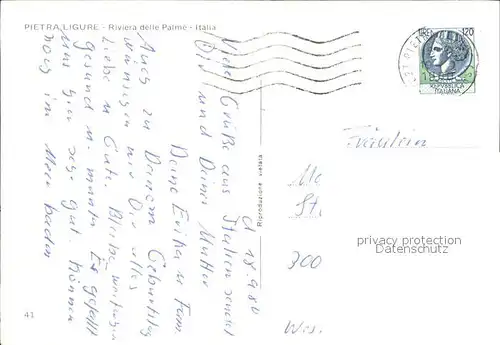 PIETRA LIGURE - Riviera delle Palme - Italia
LIRE 120
REPVBBLICA
ITALIANA
d 18.9.80
Viele Grüße aus Italien sendet
Dir und Deiner Mutter
Deine Erika u. Fam.
Auch zu Deinem Geburtstag
wünschen wir Dir alles
Liebe u. Gute. Bleibe weiterhin
gesund u. munter. Es gefällt
uns hier sehr gut. Können
noch im Meer baden
Riproduzione vietata
Fräulein
Me
St.
300
Wes.
privacy protection
Datenschutz
41